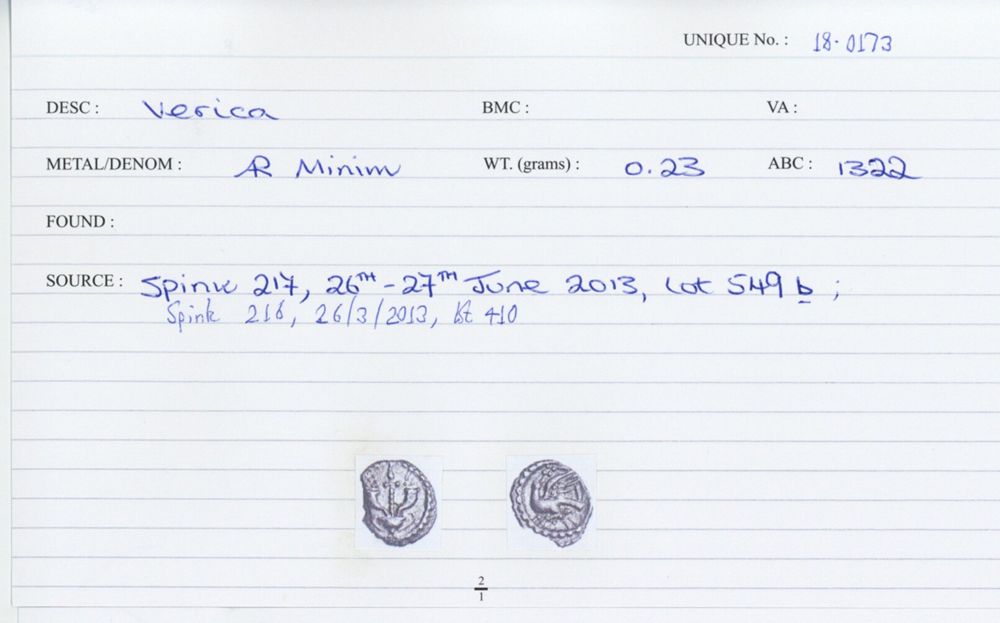 UNIQUE No. : 18.0173
DESC : Verica BMC : VA :
METAL/DENOM : AR Minim WT. (grams) : 0.23 ABC : 1322
FOUND :
SOURCE : Spink 217, 26TH - 27TH June 2013, Lot 549 b ;
Spink 216, 26/3/2013, lot 410
2
1